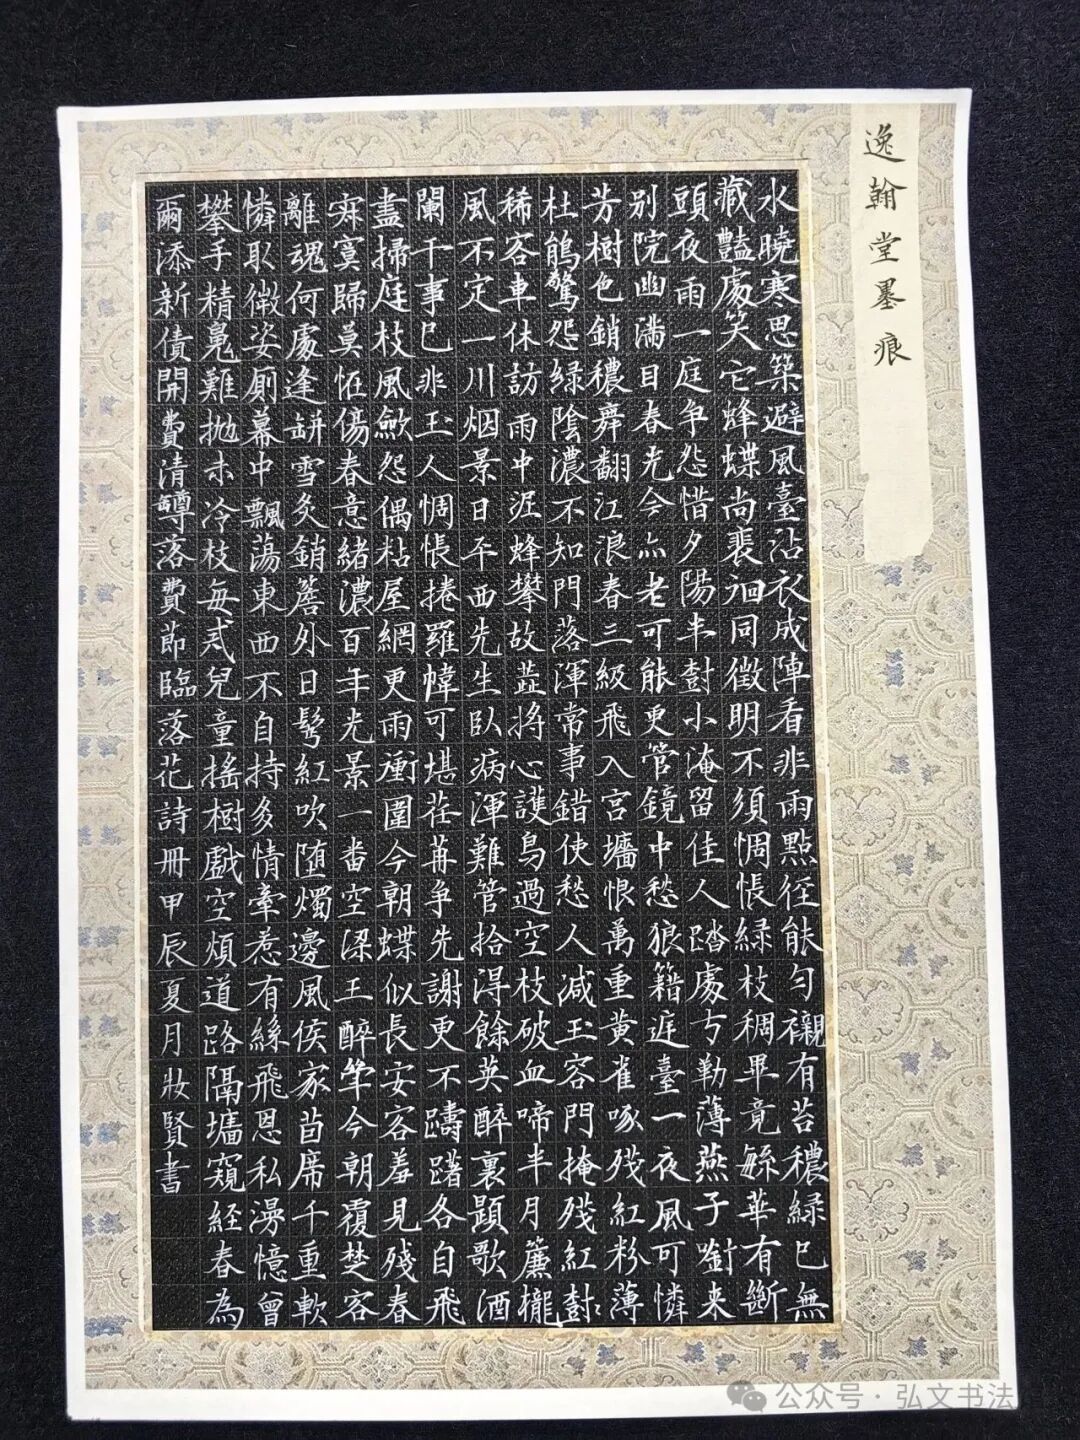 逸翰堂墨痕
水曉寒思築避風臺沾衣成陣看非雨點径能勻襯有苔穠緑已無
藏豔處笑它蜂蝶尚裴洄同徵明不須惆悵緑枝稠畢竟緐華有斷
頭夜雨一庭争怨惜夕陽半對小淹留佳人踏處弓勒薄燕子来
别院幽滿目春光今亦老可能更管鏡中愁狼籍臺一夜風可憐
芳樹色銷穠舞翻江浪春三級飛入宫墻恨萬重黄雀啄残紅粉薄
杜鵑驚怨緑陰濃不知門落渾常事錯使愁人減玉容門掩殘紅對
稀客車休訪雨中泥蜂攀故蕋将心護鳥過空枝破血啼半月簾櫳
風不定一川烟景日平西先生卧病渾難管拾得餘英醉裏題歌酒
闌干事已非玉人惆悵捲羅幃可堪茌苒争先謝更不躊躇各自飛
盡掃庭枝風歛怨偶粘屋網更雨衝圍今朝蝶似長安客羞見殘春
寂寞歸莫怪傷春意緒濃百年光景一番空梁王醉筆今朝覆楚客
離魂何處逢缾雪灸銷簷外日髩紅吹随燭邊風侯家茵席千重軟
憐取微姿厠幕中飄蕩東西不自持多情牽惹有絲飛恩私漫憶曾
攀手精鬼難抛未冷枝每忒兒童摇樹戲空煩道路隔墻窺経春為
爾添新債開費清罇落費節臨落花詩冊甲辰夏月妝賢書
公众号·弘文书法